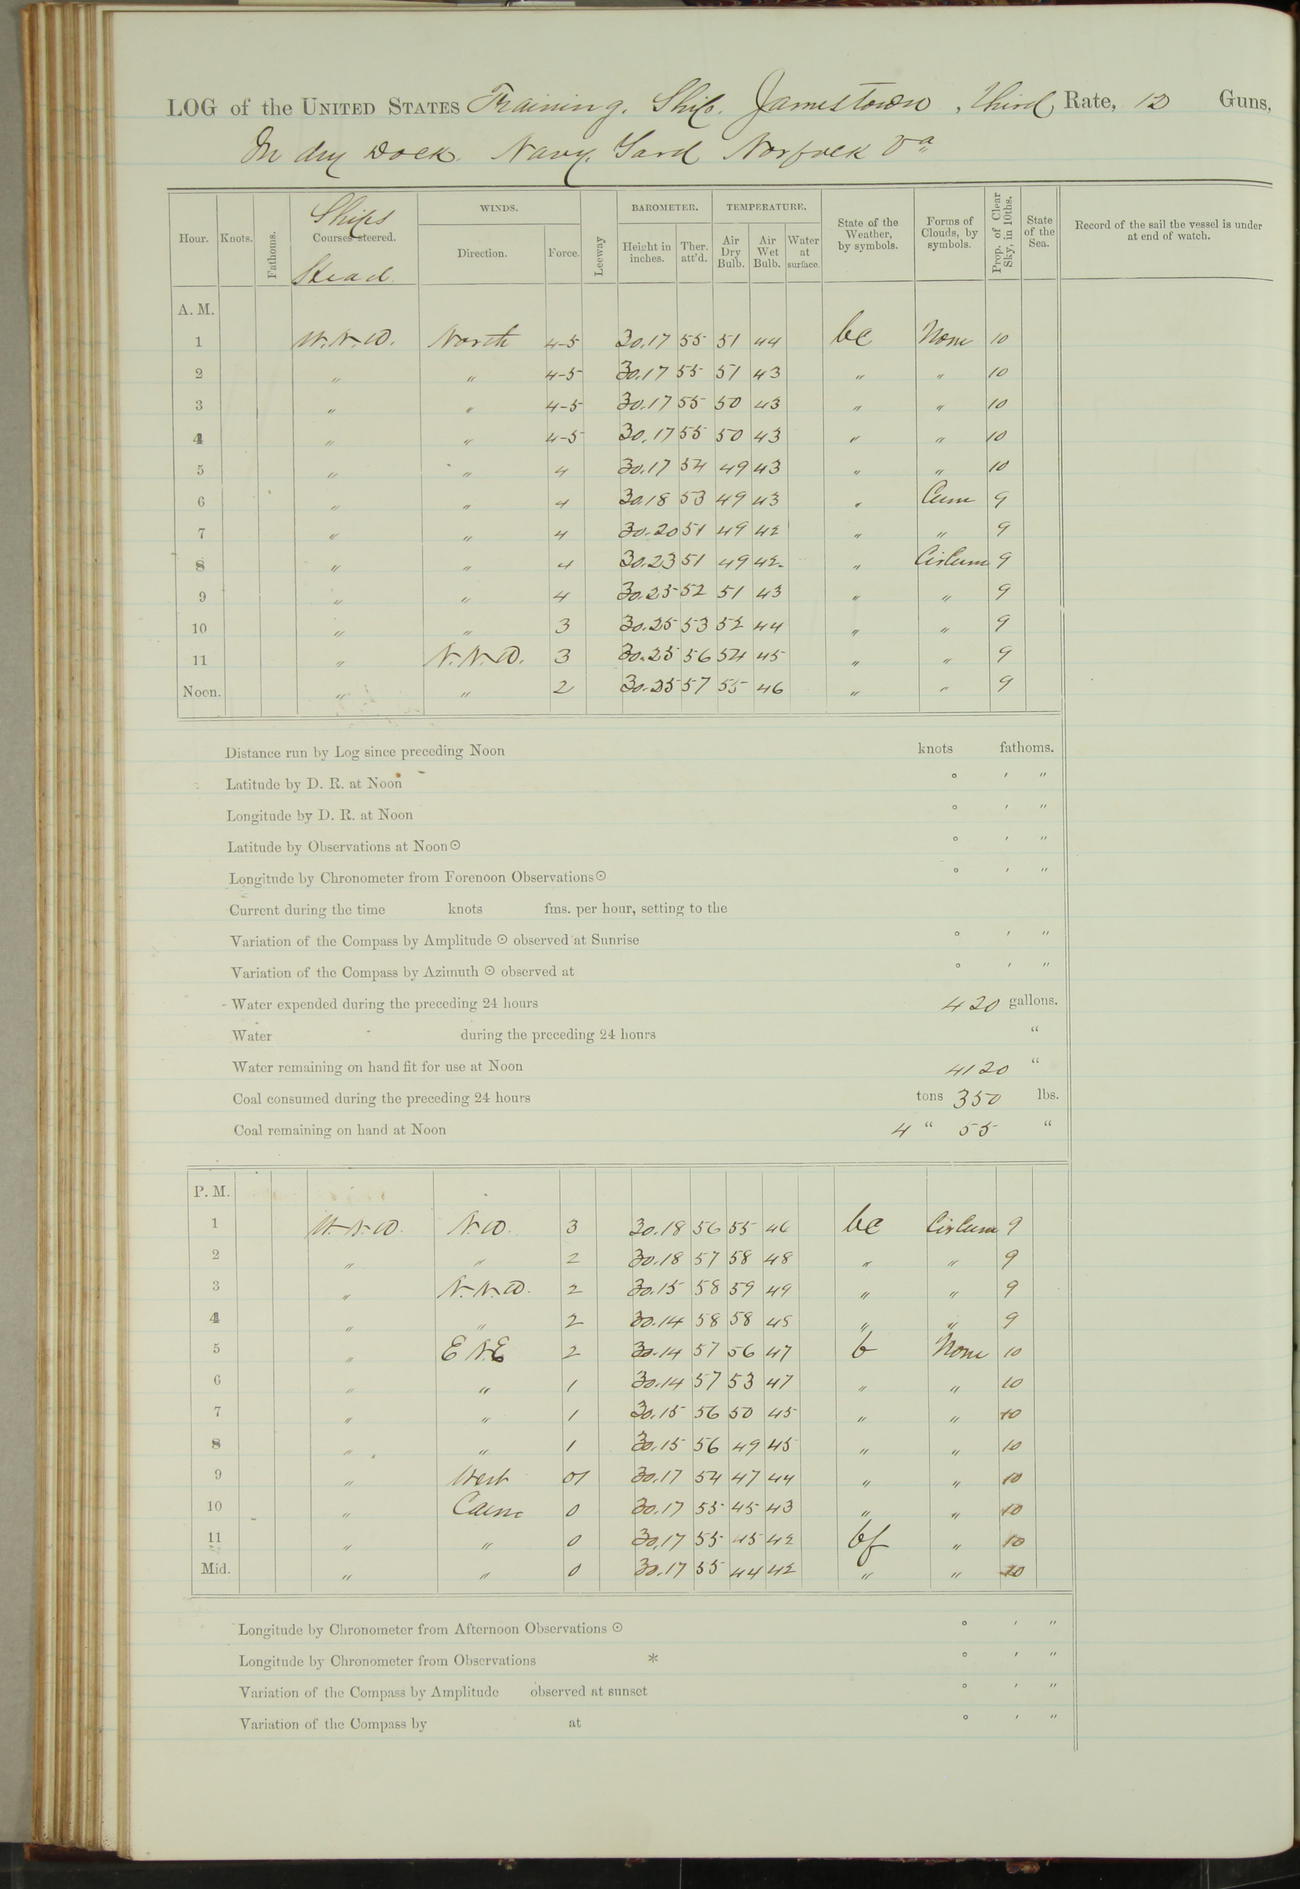 LOG of the UNITED STATES Training Ship Jamestown, third Rate, 12 Guns,
In dry Dock Navy Yard Norfolk Va
Hour. Knots. Fathoms. Ships Courses steered. Head WINDS. Direction. Force. Leeway BAROMETER. Height in inches. Ther. att'd. TEMPERATURE. Air Dry Bulb. Air Wet Bulb. Water at surface. State of the Weather, by symbols. Forms of Clouds, by symbols. Prop. of Clear Sky, in 10ths. State of the Sea. Record of the sail the vessel is under at end of watch.
A. M.
1 W.N.W. North 4-5 30.17 55 51 44 bc None 10
2 " " 4-5 30.17 55 51 43 " " 10
3 " " 4-5 30.17 55 50 43 " " 10
4 " " 4-5 30.17 55 50 43 " " 10
5 " " 4 30.17 54 49 43 " " 10
6 " " 4 30.18 53 49 43 " Cum 9
7 " " 4 30.20 51 49 42 " " 9
8 " " 4 30.23 51 49 42 " CirCum 9
9 " " 4 30.25 52 51 43 " " 9
10 " " 3 30.25 53 52 44 " " 9
11 " N.N.W. 3 30.25 56 54 45 " " 9
Noon. " " 2 30.25 57 55 46 " " 9
Distance run by Log since preceding Noon knots fathoms.
Latitude by D. R. at Noon ° ' "
Longitude by D. R. at Noon ° ' "
Latitude by Observations at Noon ☉ ° ' "
Longitude by Chronometer from Forenoon Observations ☉ ° ' "
Current during the time knots fms. per hour, setting to the
Variation of the Compass by Amplitude ☉ observed at Sunrise ° ' "
Variation of the Compass by Azimuth ☉ observed at ° ' "
Water expended during the preceding 24 hours 420 gallons.
Water during the preceding 24 hours "
Water remaining on hand fit for use at Noon 4120 "
Coal consumed during the preceding 24 hours tons 350 lbs.
Coal remaining on hand at Noon 4 " 55 "
P. M.
1 W.N.W. N.W. 3 30.18 56 55 46 bc CirCum 9
2 " " 2 30.18 57 58 48 " " 9
3 " N.N.W. 2 30.15 58 59 49 " " 9
4 " " 2 30.14 58 58 48 " " 9
5 " E N.E 2 30.14 57 56 47 b None 10
6 " " 1 30.14 57 53 47 " " 10
7 " " 1 30.15 56 50 45 " " 10
8 " " 1 30.15 56 49 45 " " 10
9 " West 01 30.17 54 47 44 " " 10
10 " Calm 0 30.17 55 45 43 " " 10
11 " " 0 30.17 55 45 42 bf " 10
Mid. " " 0 30.17 55 44 42 " " 10
Longitude by Chronometer from Afternoon Observations ☉ ° ' "
Longitude by Chronometer from Observations * ° ' "
Variation of the Compass by Amplitude observed at sunset ° ' "
Variation of the Compass by at ° ' "